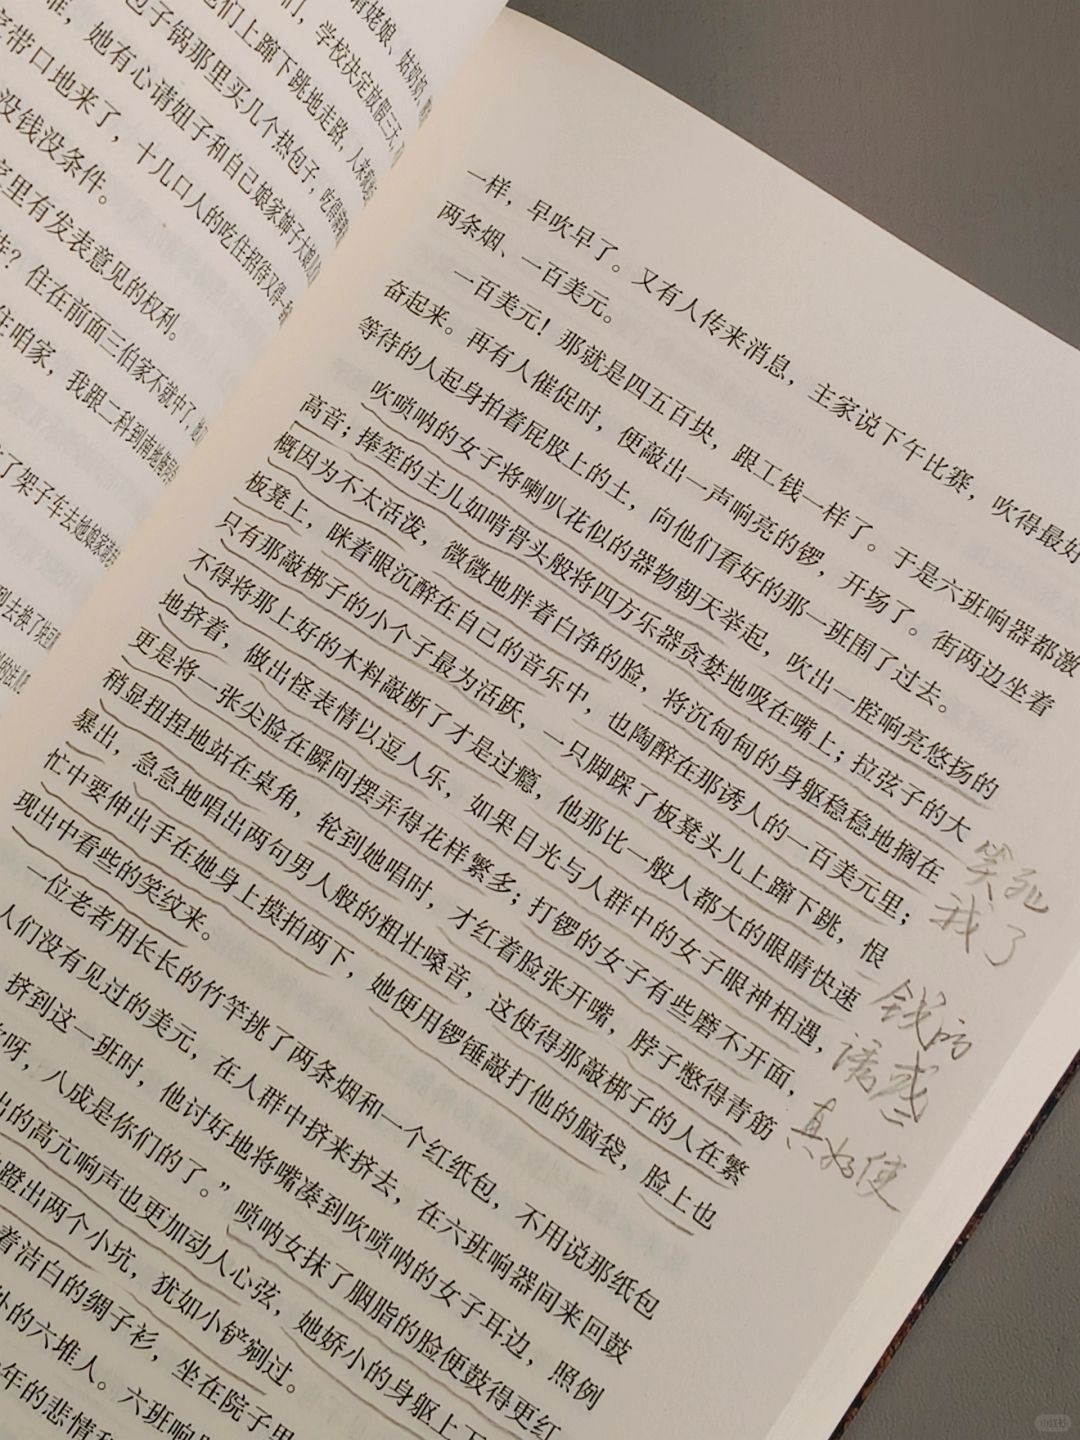 有姥娘、姑奶奶，
们，学校决定放假三天，
他们上蹿下跳地走路，人来疯
包子锅那里买几个热包子，吃得
，她有心请妞子和自己娘家婶子大娘
带口地来了，十几口人的吃住招待又得一
没钱没条件。
家里有发表意见的权利。
？住在前面三伯家不就中了，
住咱家，我跟二科到南地
了架子车去她娘家
到去换了
一样，早吹早了。又有人传来消息，主家说下午比赛，吹得最好
两条烟、一百美元。
一百美元！那就是四五百块，跟工钱一样了。于是六班响器都激
奋起来。再有人催促时，便敲出一声响亮的锣，开场了。街两边坐着
等待的人起身拍着屁股上的土，向他们看好的那一班围了过去。
吹唢呐的女子将喇叭花似的器物朝天举起，吹出一腔响亮悠扬的
高音；捧笙的主儿如啃骨头般将四方乐器贪婪地吸在嘴上；拉弦子的大
概因为不太活泼，微微地胖着白净的脸，将沉甸甸的身躯稳稳地搁在
板凳上，眯着眼沉醉在自己的音乐中，也陶醉在那诱人的一百美元里；
只有那敲梆子的小个子最为活跃，一只脚踩了板凳头儿上蹿下跳，恨
不得将那上好的木料敲断了才是过瘾，他那比一般人都大的眼睛快速
地挤着，做出怪表情以逗人乐，如果目光与人群中的女子眼神相遇，
更是将一张尖脸在瞬间摆弄得花样繁多；打锣的女子有些磨不开面，
稍显扭捏地站在桌角，轮到她唱时，才红着脸张开嘴，脖子憋得青筋
暴出，急急地唱出两句男人般的粗壮嗓音，这使得那敲梆子的人在繁
忙中要伸出手在她身上摸拍两下，她便用锣锤敲打他的脑袋，脸上也
现出中看些的笑纹来。
一位老者用长长的竹竿挑了两条烟和一个红纸包，不用说那纸包
人们没有见过的美元，在人群中挤来挤去，在六班响器间来回鼓
挤到这一班时，他讨好地将嘴凑到吹唢呐的女子耳边，照例
呀，八成是你们的了。”唢呐女抹了胭脂的脸便鼓得更红
出的高亢响声也更加动人心弦，她娇小的身躯上下
蹬出两个小坑，犹如小铲剜过。
着洁白的绸子衫，坐在院子里
外的六堆人。六班响
年的悲情
笑死
我了
钱的
诱惑
真好使
小红书